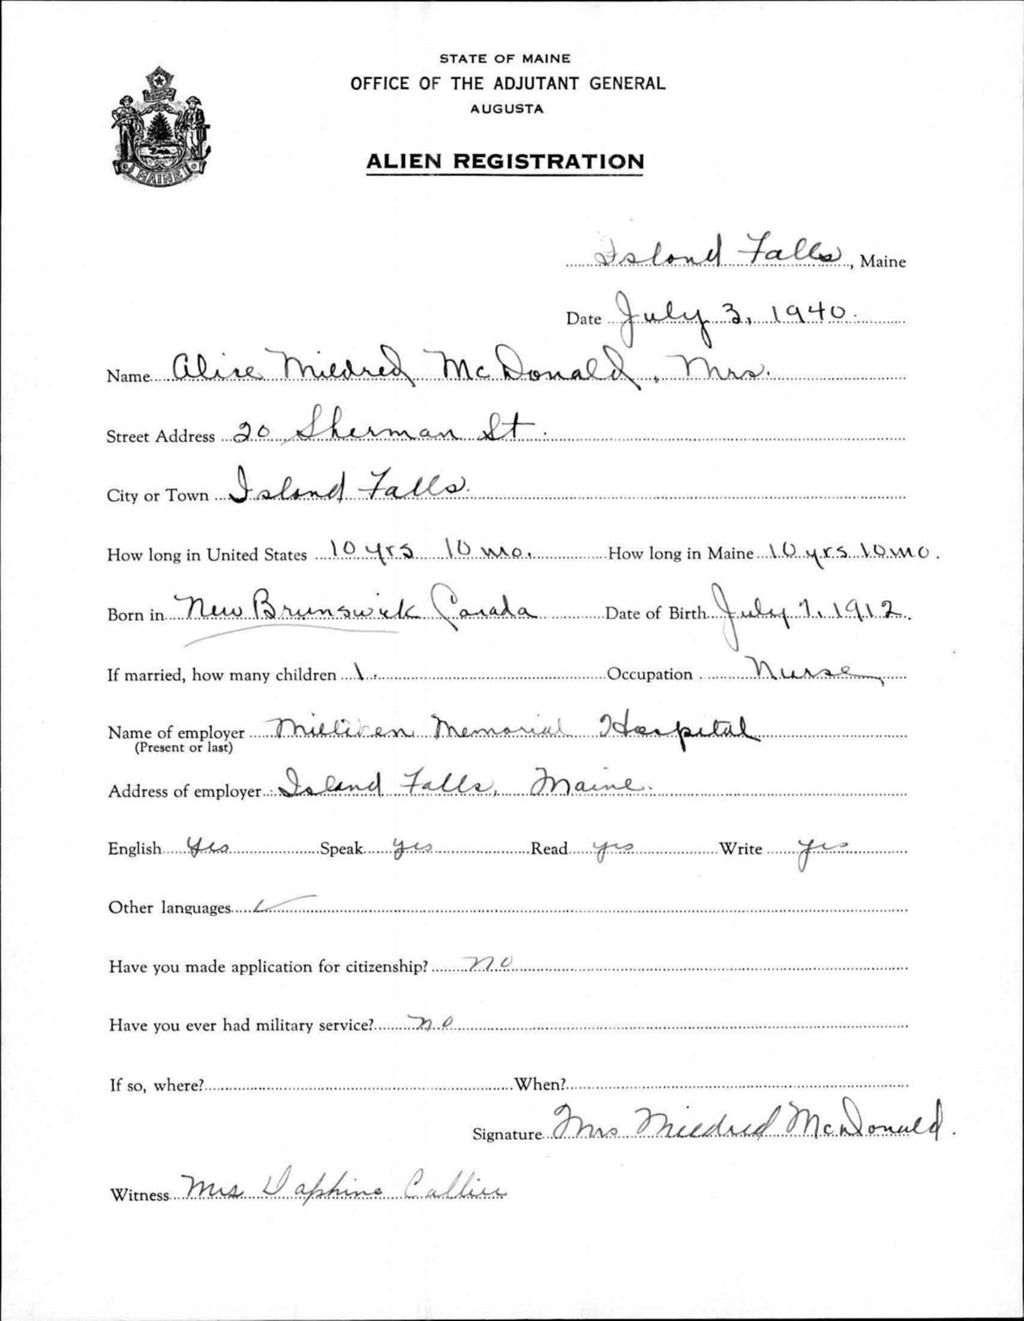 STATE OF MAINE
OFFICE OF THE ADJUTANT GENERAL
AUGUSTA
ALIEN REGISTRATION
MAINE
Island Falls, Maine
Date July 3, 1940.
Name Alice Mildred McDonald, Mrs.
Street Address 20 Sherman St.
City or Town Island Falls.
How long in United States 10 yrs 10 mo. How long in Maine 10 yrs 10 mo.
Born in New Brunswick Canada Date of Birth July 7, 1912.
If married, how many children 1. Occupation Nurse
Name of employer Milliken Memorial Hospital
(Present or last)
Address of employer Island Falls, Maine.
English Yes Speak yes Read yes Write yes
Other languages
Have you made application for citizenship? no
Have you ever had military service? no
If so, where? When?
Signature Mrs Mildred McDonald.
Witness Mrs Daphine